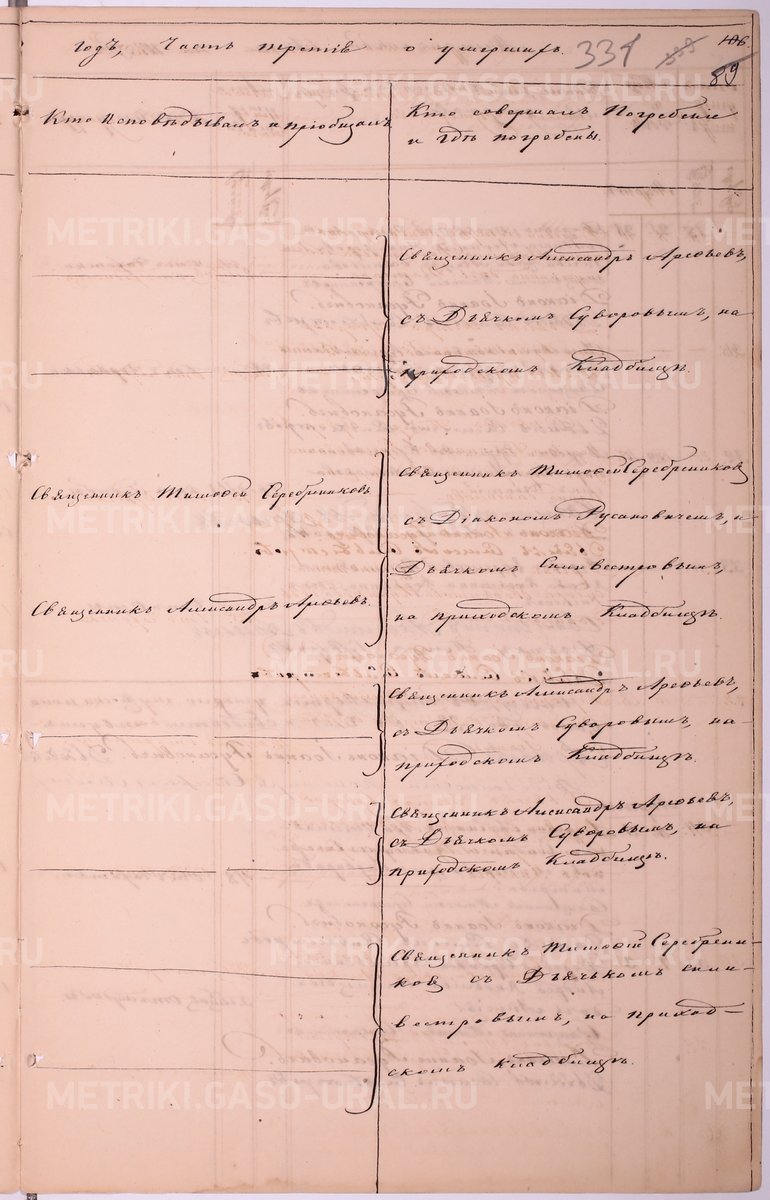 годъ, Часть третія о умершихъ. 331 106
89
Кто Исповѣдывалъ и пріобщалъ
Кто совершалъ Погребеніе
и гдѣ погребены.
Священникъ Александръ Арефьевъ,
съ Дьячкомъ Суворовымъ, на
приходскомъ Кладбищѣ.
Священникъ Тимофей Серебренниковъ
Священникъ Александръ Арефьевъ.
Священникъ Тимофей Серебрениковъ
съ Діакономъ Русановичемъ, и
Дьячкомъ Силивестровымъ,
на приходскомъ Кладбищѣ.
Священникъ Александръ Арефьевъ,
съ Дьячкомъ Суворовымъ, на
приходскомъ Кладбищѣ.
Священникъ Александръ Арефьевъ,
съ Дьячкомъ Суворовымъ, на
приходскомъ Кладбищѣ.
Священникъ Тимофій Серебрени-
ковъ съ Дьячькомъ Сили-
вестровымъ, на приход-
скомъ Кладбищѣ.
METRIKI.GASO-URAL.RU